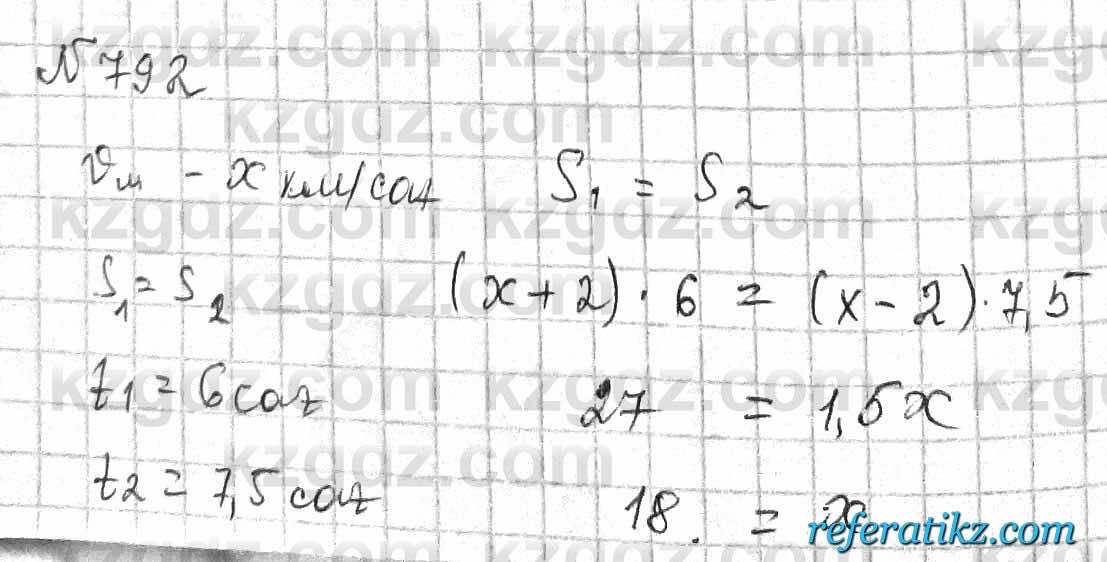 №792
υм - x км/сағ
S₁ = S₂
t₁ = 6 сағ
t₂ = 7,5 сағ
S₁ = S₂
(x + 2) · 6 = (x - 2) · 7,5
27 = 1,5x
18. = x
kzgdz.com
referatikz.com